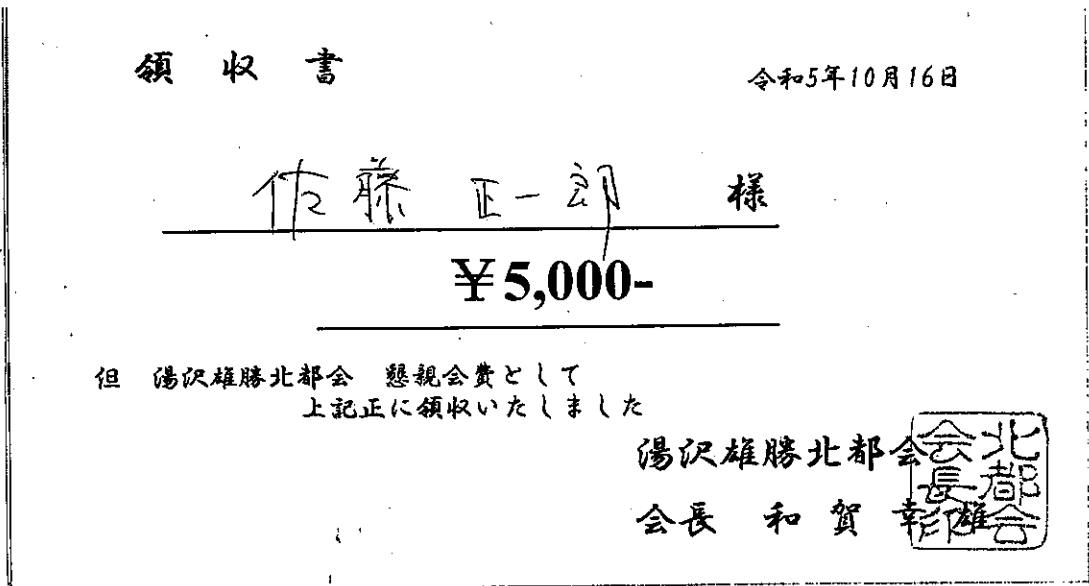 領 収 書
令和5年10月16日
佐藤 正一郎 様
￥5,000-
但 湯沢雄勝北都会 懇親会費として
上記正に領収いたしました
湯沢雄勝北都会
会長 和賀 幸雄
北都会
会長印